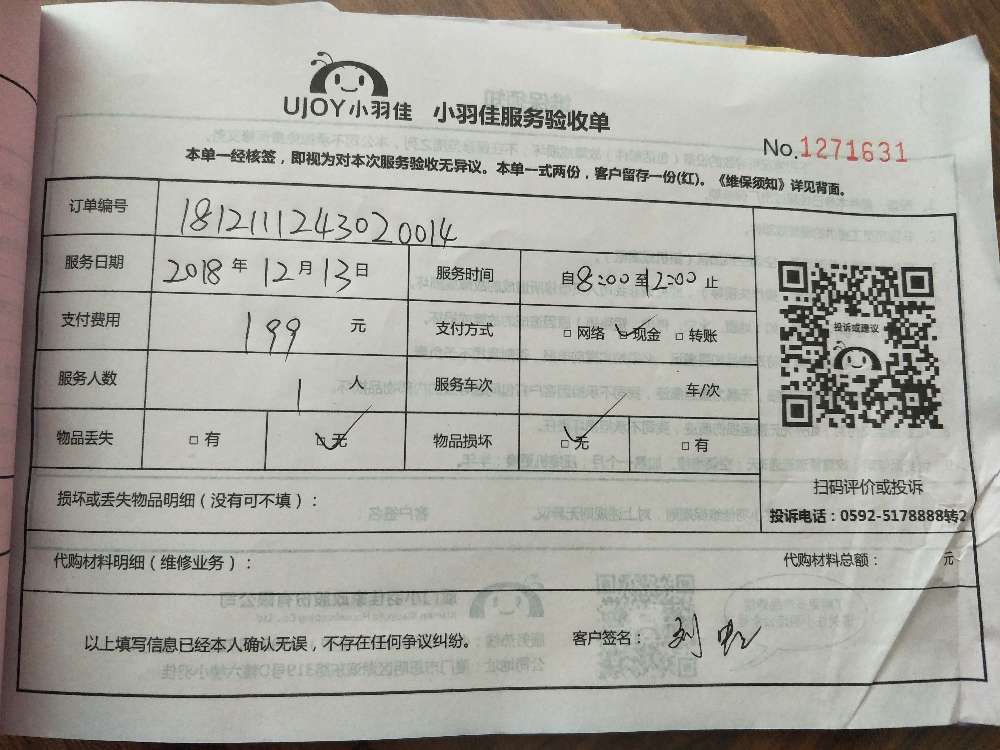 UJOY小羽佳 小羽佳服务验收单
No.1271631
本单一经核签，即视为对本次服务验收无异议。本单一式两份，客户留存一份(红)。《维保须知》详见背面。
订单编号 1812111243020014
服务日期 2018年12月13日 服务时间 自8:00至12:00止
支付费用 199元 支付方式 □网络 ☑现金 □转账
投诉或建议
服务人数 1人 服务车次 车/次
物品丢失 □有 ☑无 物品损坏 ☑无 □有
扫码评价或投诉
损坏或丢失物品明细（没有可不填）：
投诉电话：0592-5178888转2
代购材料明细（维修业务）： 代购材料总额： 元
以上填写信息已经本人确认无误，不存在任何争议纠纷。 客户签名：刘